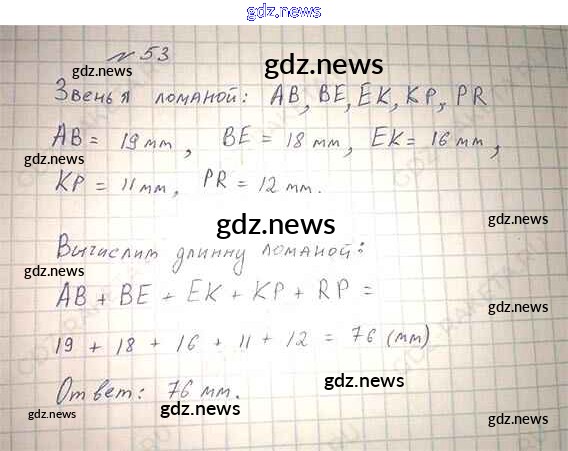 gdz.news
№ 53
gdz.news gdz.news
Звенья ломаной: AB, BE, EK, KP, PR
AB = 19 мм, BE = 18 мм, EK = 16 мм,
gdz.news
KP = 11 мм, PR = 12 мм.
gdz.news
gdz.news
Вычислит длинну ломаной:
gdz.news
AB + BE + EK + KP + RP =
19 + 18 + 16 + 11 + 12 = 76 (мм)
gdz.news
Ответ: 76 мм.
gdz.news gdz.news gdz.news